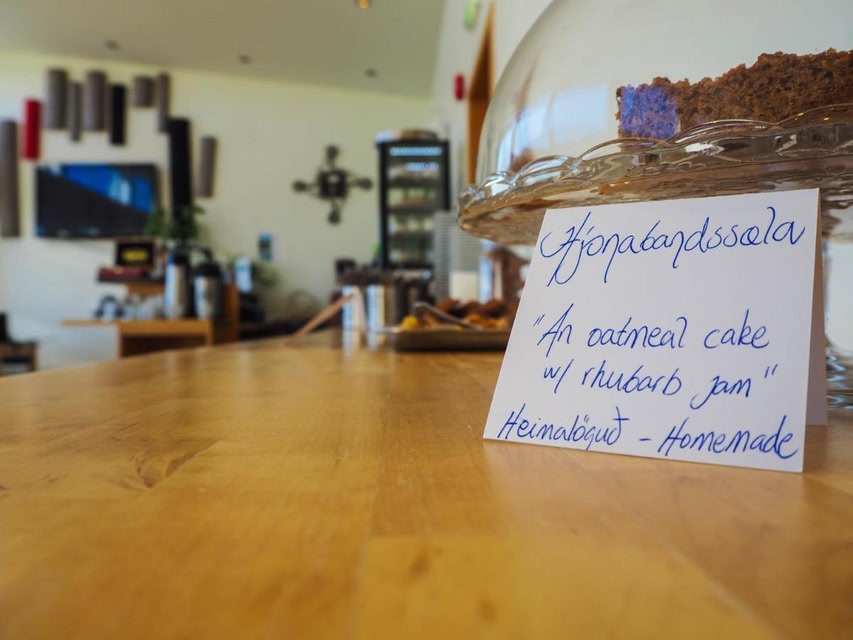 Hjónabandssæla
"An oatmeal cake
w/ rhubarb jam"
Heimalöguð - Homemade